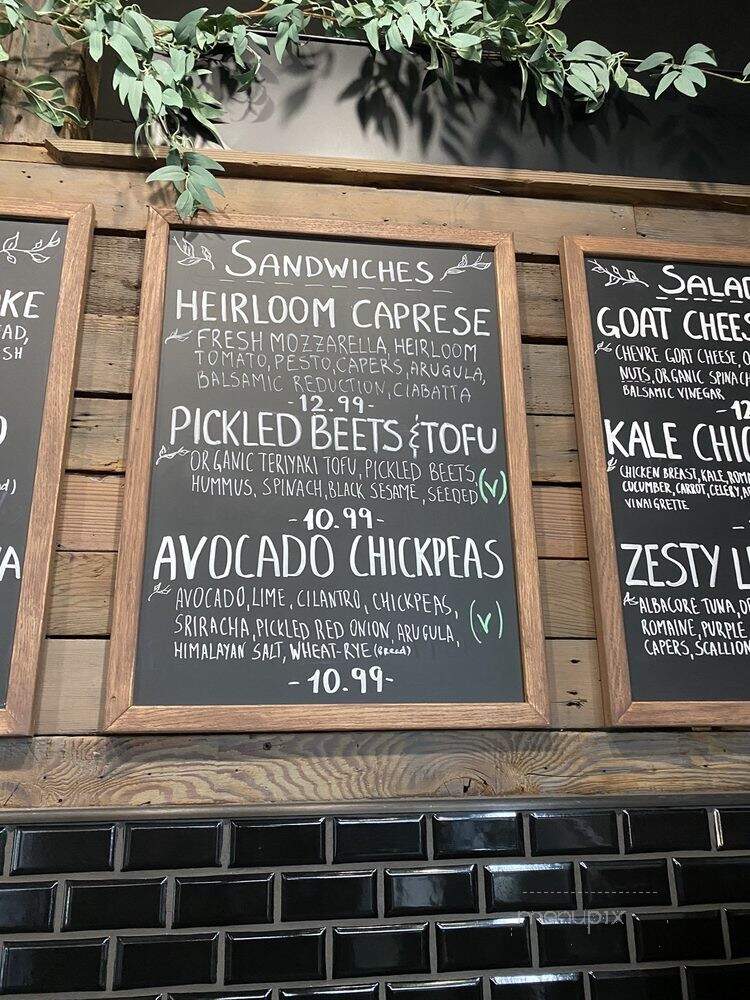 OKE
EAD,
SH
SANDWICHES
HEIRLOOM CAPRESE
FRESH MOZZARELLA, HEIRLOOM
TOMATO, PESTO, CAPERS, ARUGULA,
BALSAMIC REDUCTION, CIABATTA
-12.99-
PICKLED BEETS & TOFU
ORGANIC TERIYAKI TOFU, PICKLED BEETS,
HUMMUS, SPINACH, BLACK SESAME, SEEDED (V)
-10.99-
AVOCADO CHICKPEAS
AVOCADO, LIME, CILANTRO, CHICKPEAS,
SRIRACHA, PICKLED RED ONION, ARUGULA, (V)
HIMALAYAN SALT, WHEAT-RYE (Bread)
-10.99-
SALAD
GOAT CHEES
CHEVRE GOAT CHEESE,
NUTS, ORGANIC SPINACH
BALSAMIC VINEGAR
-12
KALE CHIC
CHICKEN BREAST, KALE, ROMA
CUCUMBER, CARROT, CELERY,
VINAIGRETTE
ZESTY L
ALBACORE TUNA,
ROMAINE, PURPLE
CAPERS, SCALLION
menupix